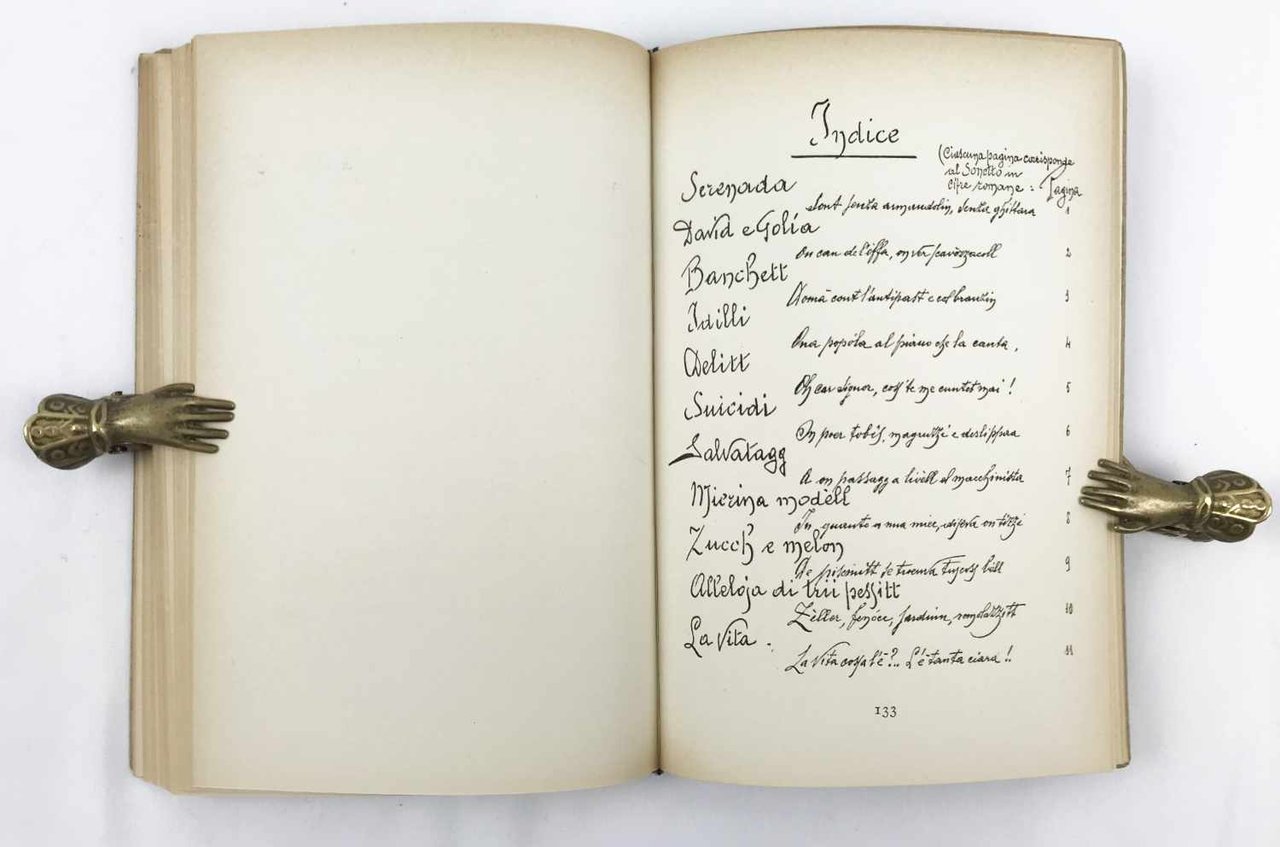 Indice
(Ciascuna pagina corrisponde
al Sonetto in
cifre romane : Pagina
Serenada
Sont senta armandolin, senta ghittara 1
David e Golia
On can de l'effa, on ver scavezzacoll 2
Banchett
Domà cont l'antipast e col branzin 3
Idilli
Ona popòla al piano che la canta, 4
Delitt
Oh car signor, coss'te me cuntet mai ! 5
Suicidi
On poer tobis, magrutzi e 6
Salvatagg
A on passagg a livèll el macchinista 7
Micrina modèll
In quanto a nua diseva on 8
Zucch e melon
De se troeuva bèll 9
Alleloja di trii pessitt
Zèller, fenócc, 10
La Vita .
La Vita cossa l'è ?.. L'è tanta ciara ! 11
133